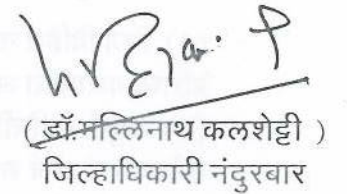 ( डॉ.मल्लिनाथ कलशेट्टी )
जिल्हाधिकारी नंदुरबार